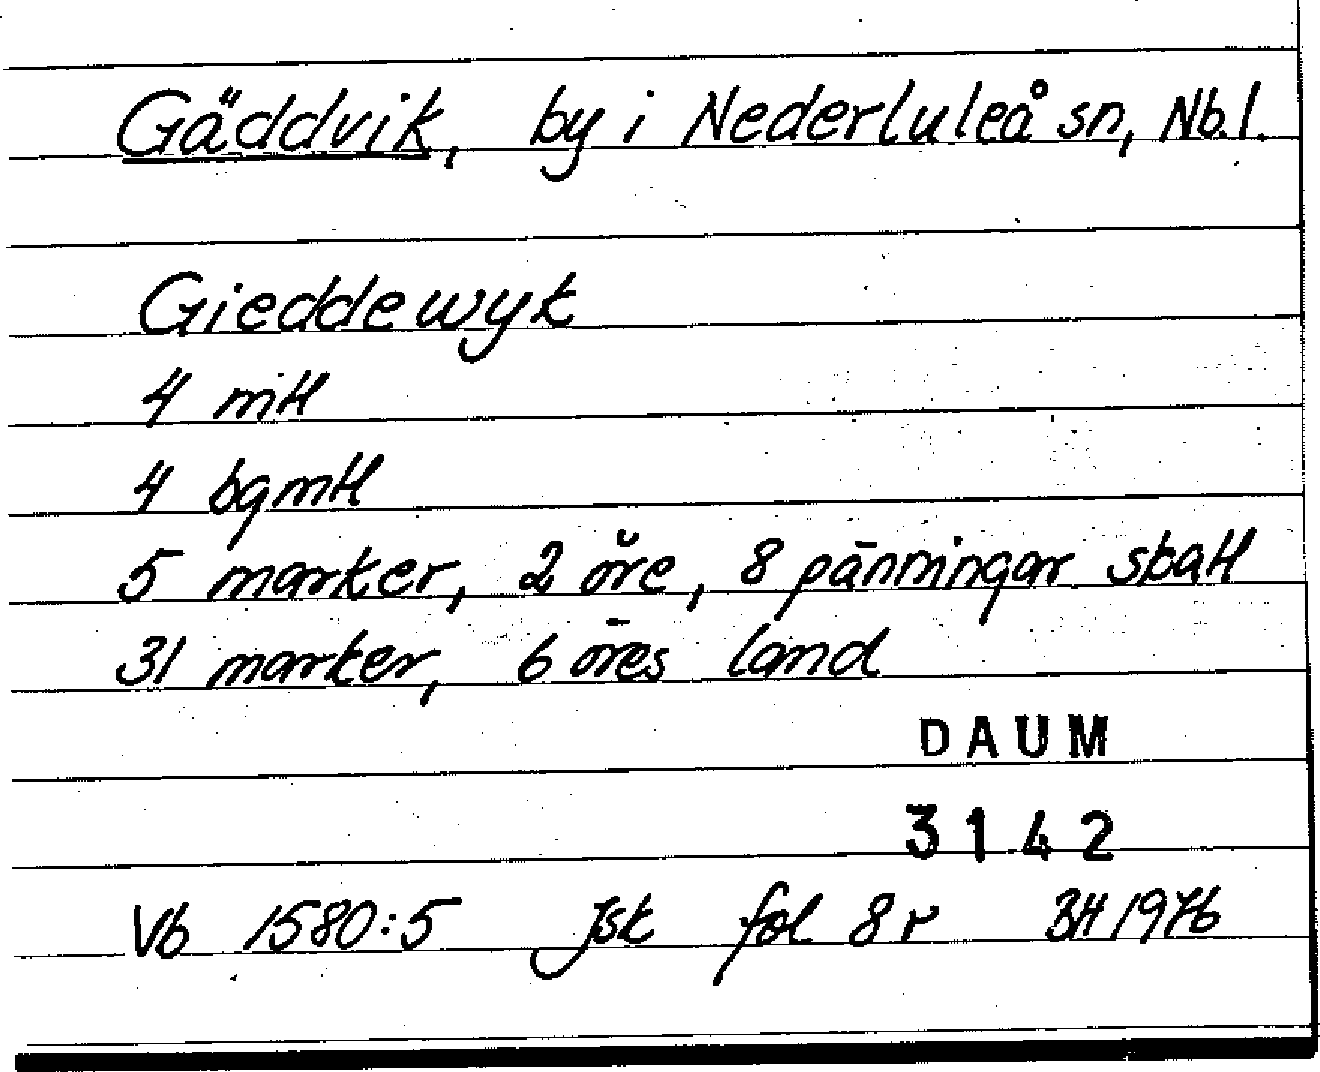 Gäddvik, by i Nederluleå sn, Nb.l.
Gieddewyk
4 mtl
4 bgmtl
5 marker, 2 öre, 8 pänningar skatt
31 marker, 6 öres land
DAUM
3142
Vb 1580:5 Jsk fol 8r BH 1976